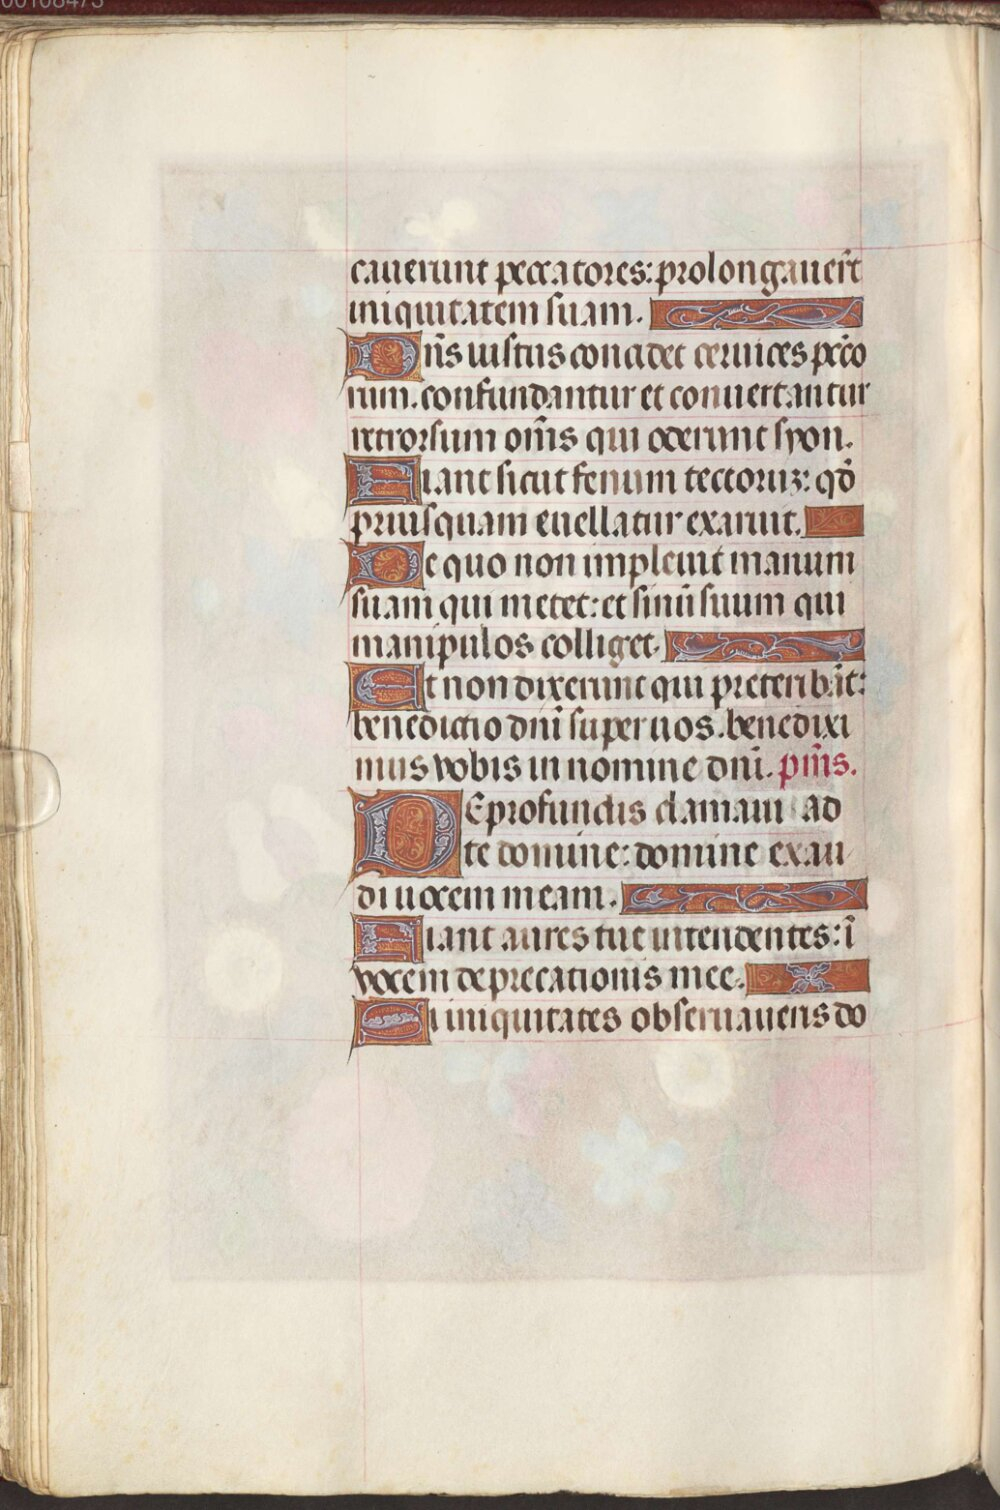 cauerunt peccatores: prolongauerūt
iniquitatem suam.
Dn̄s iustus concidet ceruices pecc̄o
rum. confundantur et conuertantur
retrorsum om̄s qui oderunt syon.
Fiant sicut fenum tectoruꝫ: qd̄
priusquam euellatur exaruit.
De quo non impleuit manum
suam qui metet: et sinū suum qui
manipulos colliget.
Et non dixerunt qui preteribāt:
benedictio dn̄i super uos. benedixi
mus vobis in nomine dn̄i. pm̄s.
DE profundis clamaui ad
te domine: domine exau
di uocem meam.
Fiant aures tue intendentes: ī
vocem deprecationis mee.
Si iniquitates obseruaueris do